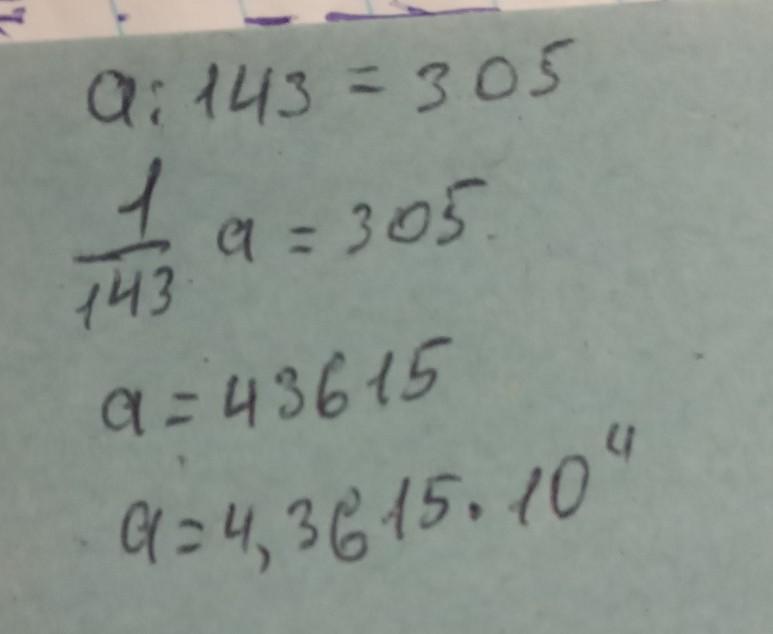 a : 143 = 305
1/143 a = 305
a = 43615
a = 4,3615 · 10⁴